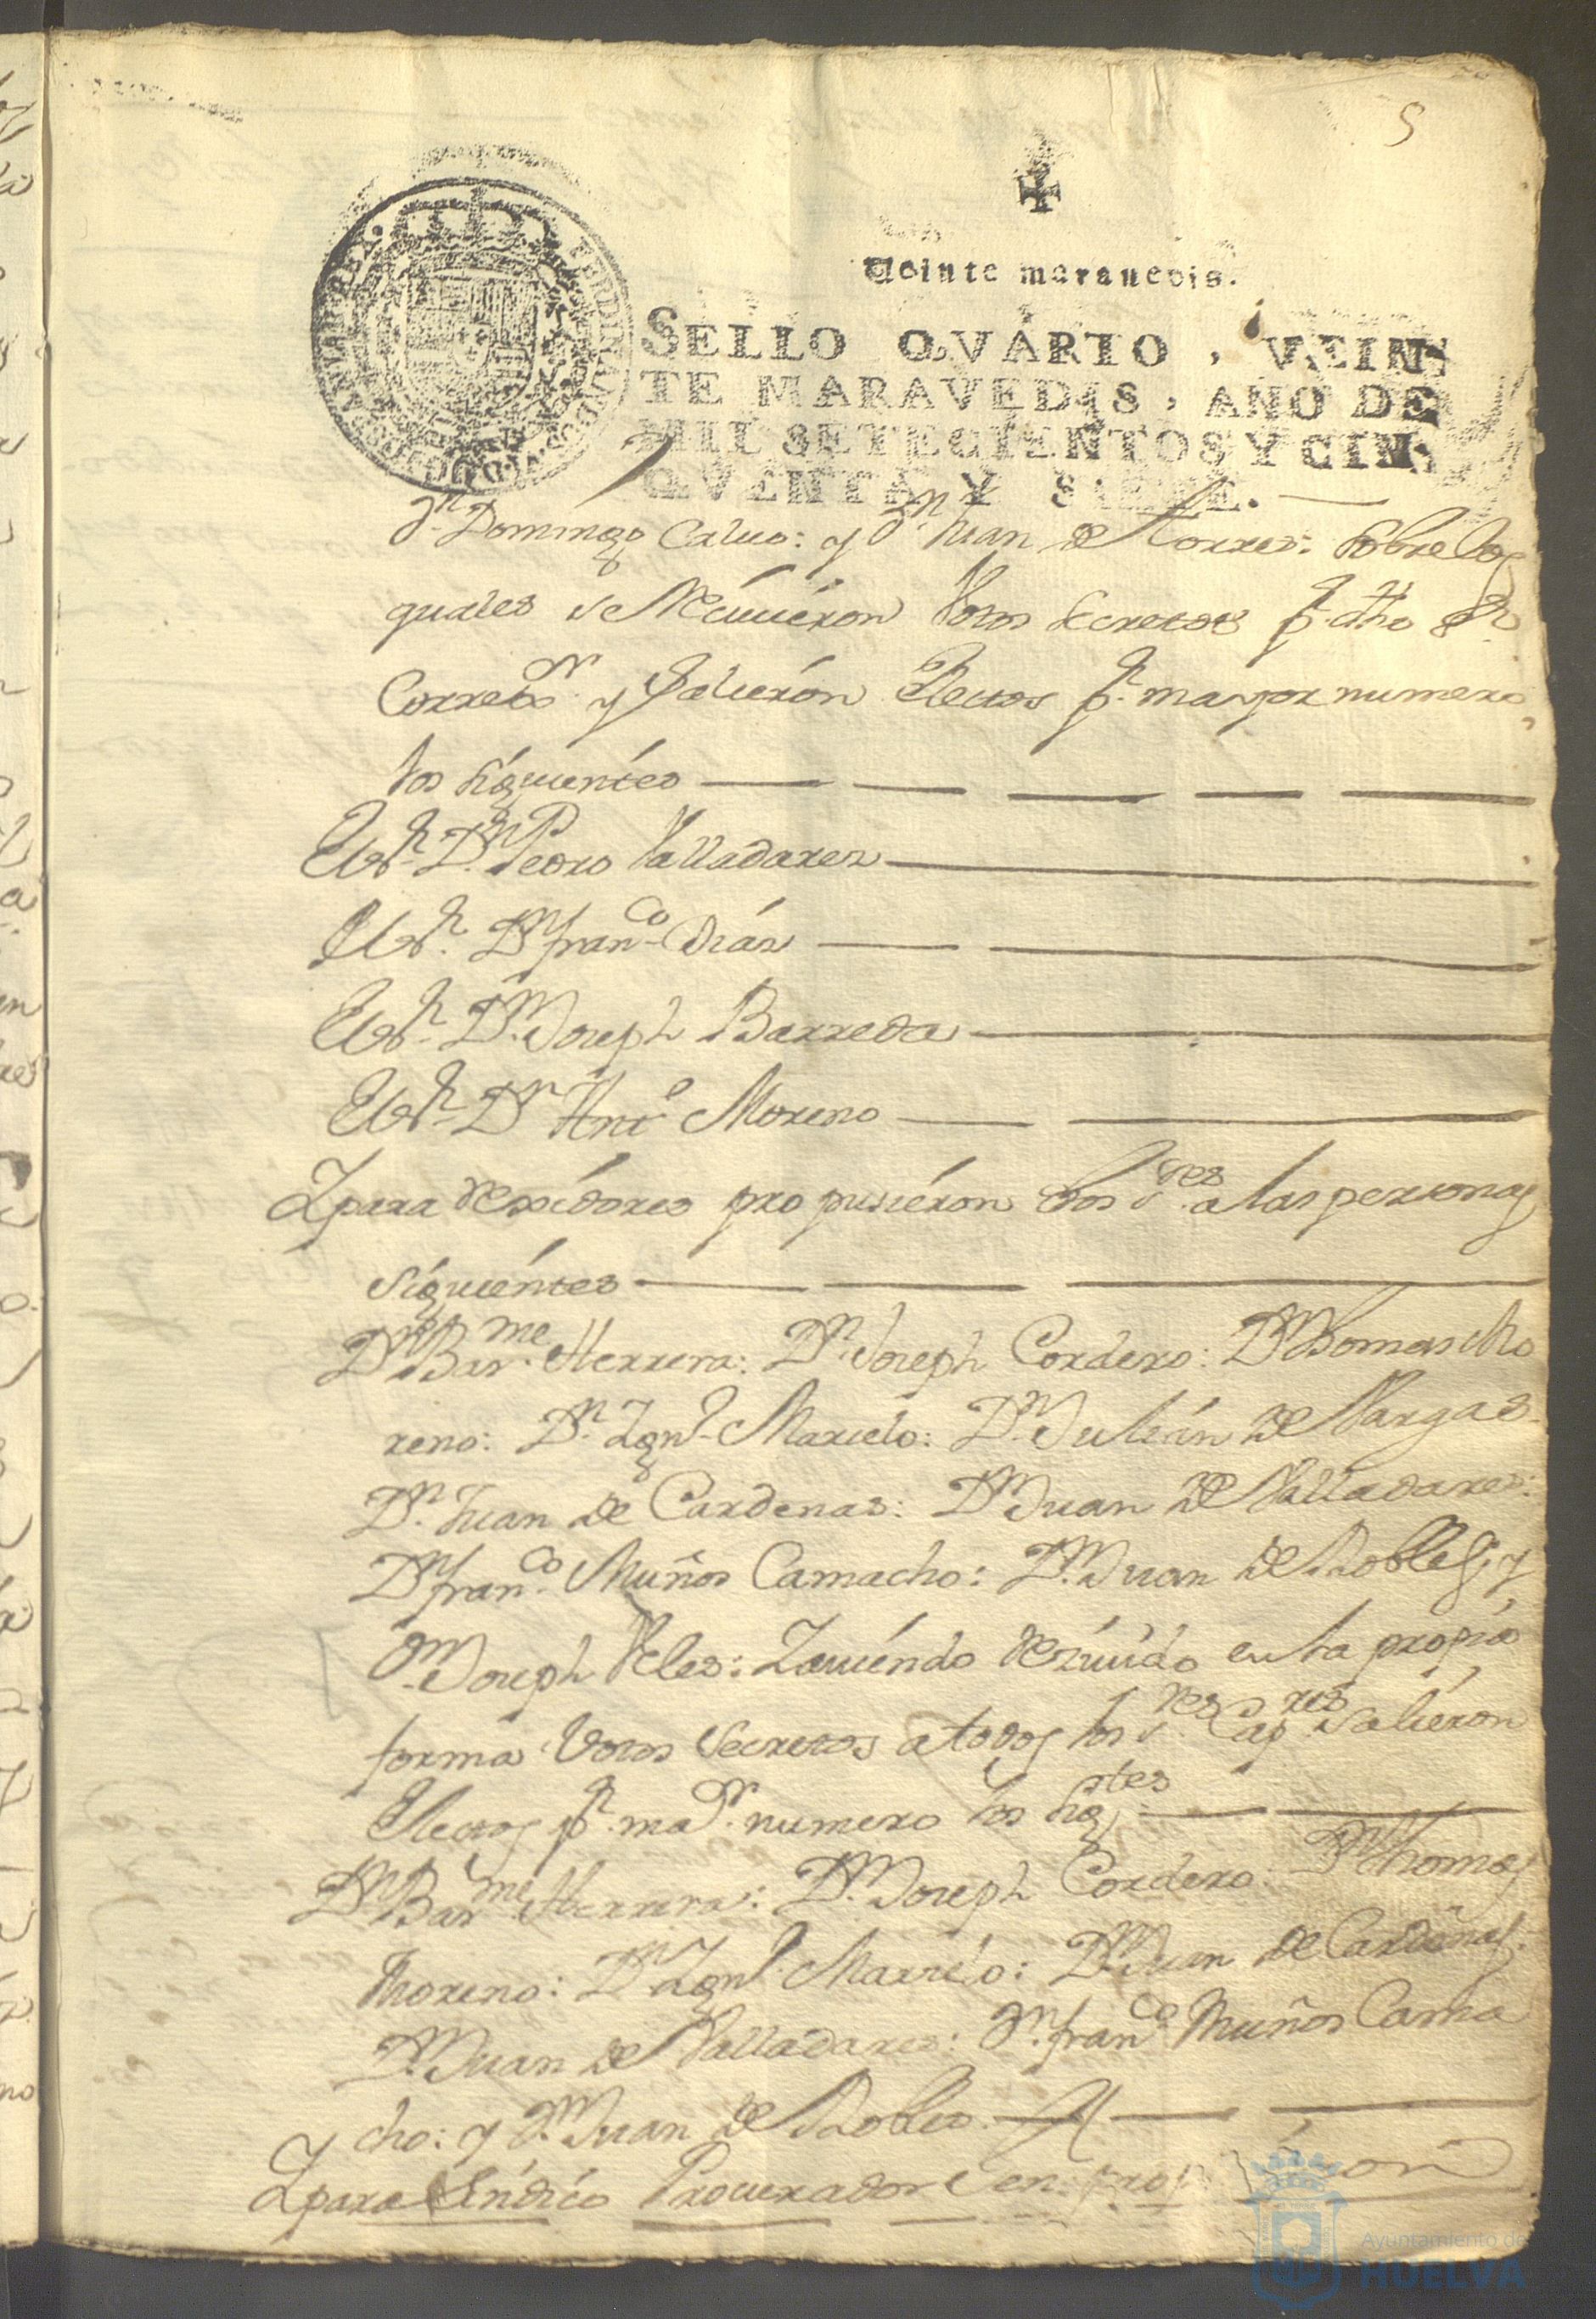 5
Veinte maravedis.
SELLO QVARTO, VEIN-
TE MARAVEDIS, AÑO DE
MIL SETECIENTOS Y CIN-
QVENTA Y SIETE.
Dn. Domingo Calvo: y Dn. Juan de Torres: Sobre los
quales se Recivieron Votos Secretos pr. dho Sr.
Corregor. y Salieron Electos pr. mayor numero
los siguientes
El Sr. Dn. Pedro Valladares
El Sr. Dn. franco. Días
El Sr. Dn. Joseph Barreda
El Sr. Dn. Anto. Moreno
Y para Rexidores propusieron dhos Sres. a las personas
siguientes
Dn. Barme. Herrera: Dn. Joseph Cordero: Dn. Thomas Mo
reno: Dn. Ignº. Marcelo: Dn. Julián de Vargas
Dn. Juan de Cardenas: Dn. Juan de Valladares:
Dn. franco. Muños Camacho: Dn. Juan de Robles: y
Dn. Joseph Veles: Y aviendo Rezivido en la propia
forma Votos Secretos a todos los Sres. Capres. Salieron
Electos pr. mar. numero los sigtes.
Dn. Barme. Herrera: Dn. Joseph Cordero: Dn. Thomas
Moreno: Dn. Ignº. Marcelo: Dn. Juan de Cardenas:
Dn. Juan de Valladares: Dn. franco. Muños Cama
cho: y Dn. Juan de Robles.
Y para Síndico Procurador Gen.
Ayuntamiento de
HUELVA